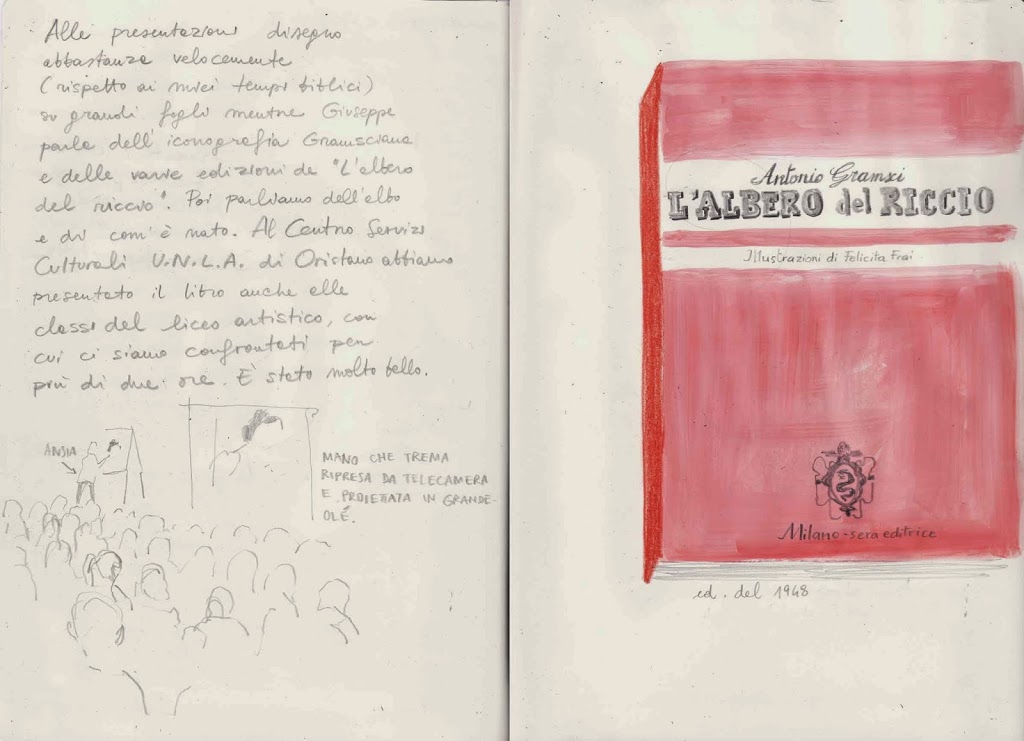 Alle presentazioni disegno
abbastanza velocemente
(rispetto ai miei tempi biblici)
su grandi fogli mentre Giuseppe
parla dell'iconografia Gramsciana
e delle varie edizioni de "L'albero
del riccio". Poi parliamo dell'albo
e di com'è nato. Al Centro Servizi
Culturali U.N.L.A. di Oristano abbiamo
presentato il libro anche alle
classi del liceo artistico, con
cui ci siamo confrontati per
più di due ore. È stato molto bello.
ANSIA
MANO CHE TREMA
RIPRESA DA TELECAMERA
E PROIETTATA IN GRANDE-
OLÉ.
Antonio Gramsci
L'ALBERO del RICCIO
Illustrazioni di Felicita Frai
Milano-sera editrice
ed. del 1948